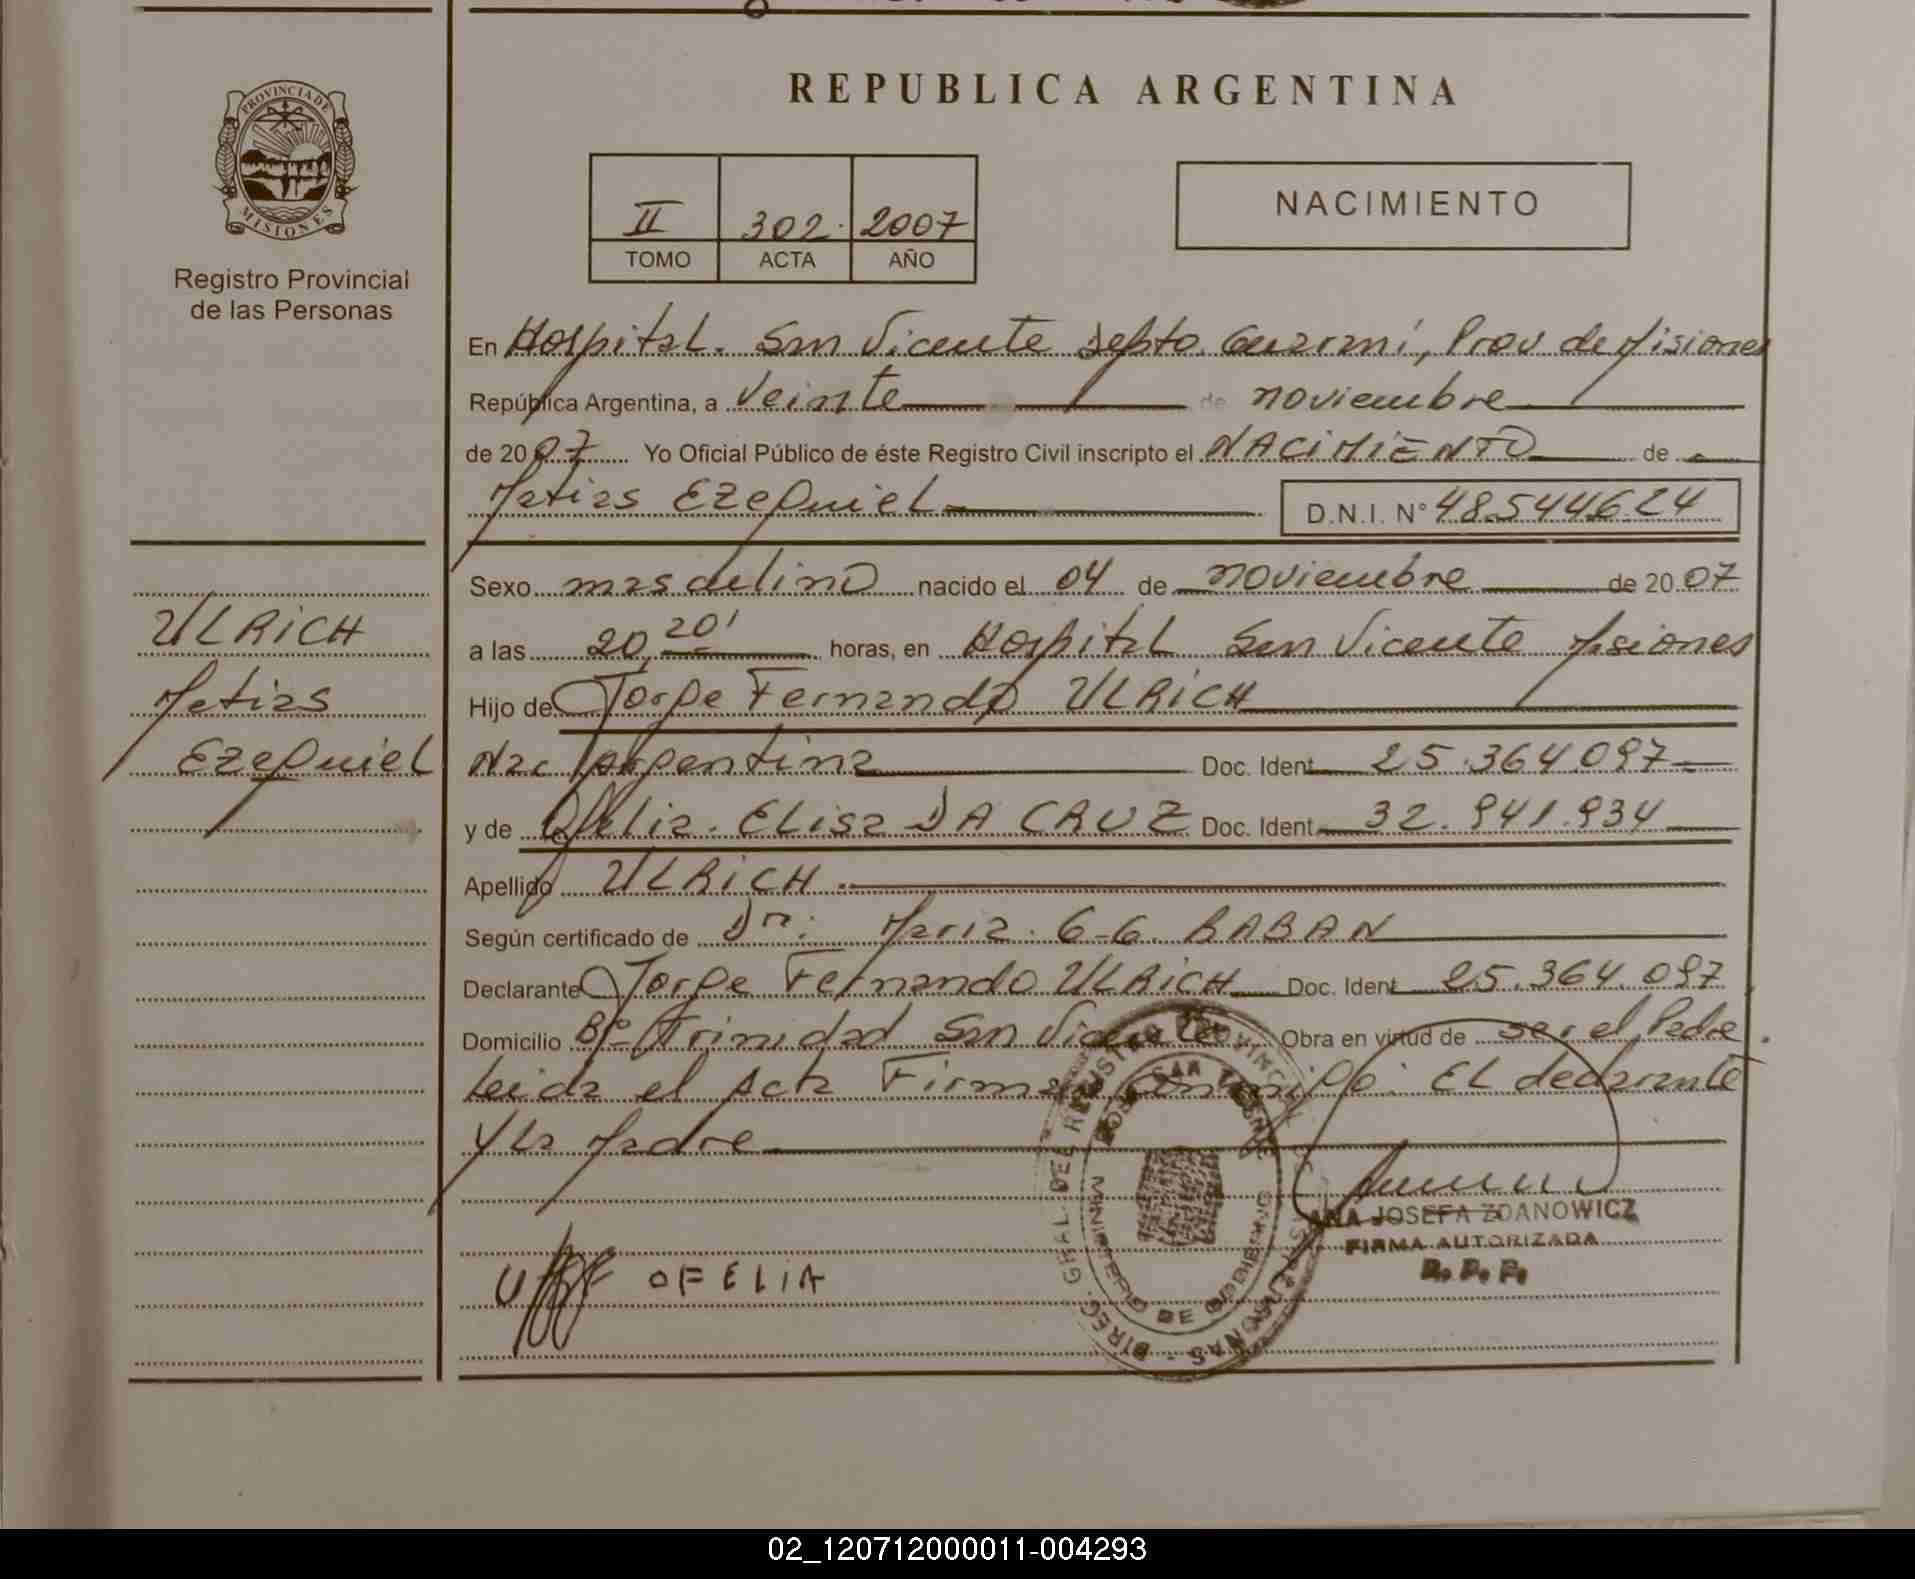 REPUBLICA ARGENTINA
PROVINCIA DE
MISIONES
Registro Provincial
de las Personas
II 302 2007
TOMO ACTA AÑO
NACIMIENTO
En Hospital. San Vicente Depto. Guarani, Prov de Misiones
República Argentina, a Veinte de noviembre
de 2007 Yo Oficial Público de éste Registro Civil inscripto el NACIMIENTO de
Matias Ezequiel D.N.I. N° 48.544.624
Sexo masculino nacido el 04 de noviembre de 2007
a las 20,20' horas, en Hospital San Vicente Misiones
Hijo de Jorge Fernando ULRICH
Nac Argentina Doc. Ident 25.364.097
y de Ofelia. ELisa DA CRUZ Doc. Ident 32.941.934
Apellido ULRICH
Según certificado de Dra: Maria. G-G. RABAN
Declarante Jorge Fernando ULRICH Doc. Ident 25.364.097
Domicilio B° Trinidad San Vicente Obra en virtud de ser el Padre.
Leida el Acta Firma conmigo: EL declarante
Y La Madre
ULRICH
Matias
Ezequiel
OFELIA
DIREC. GRAL. DEL REGISTRO PROVINCIAL DE LAS PERSONAS
HOSP. SAN VICENTE
MINISTERIO DE GOBIERNO
ANA JOSEFA ZDANOWICZ
FIRMA AUTORIZADA
R. P. P.
02_120712000011-004293